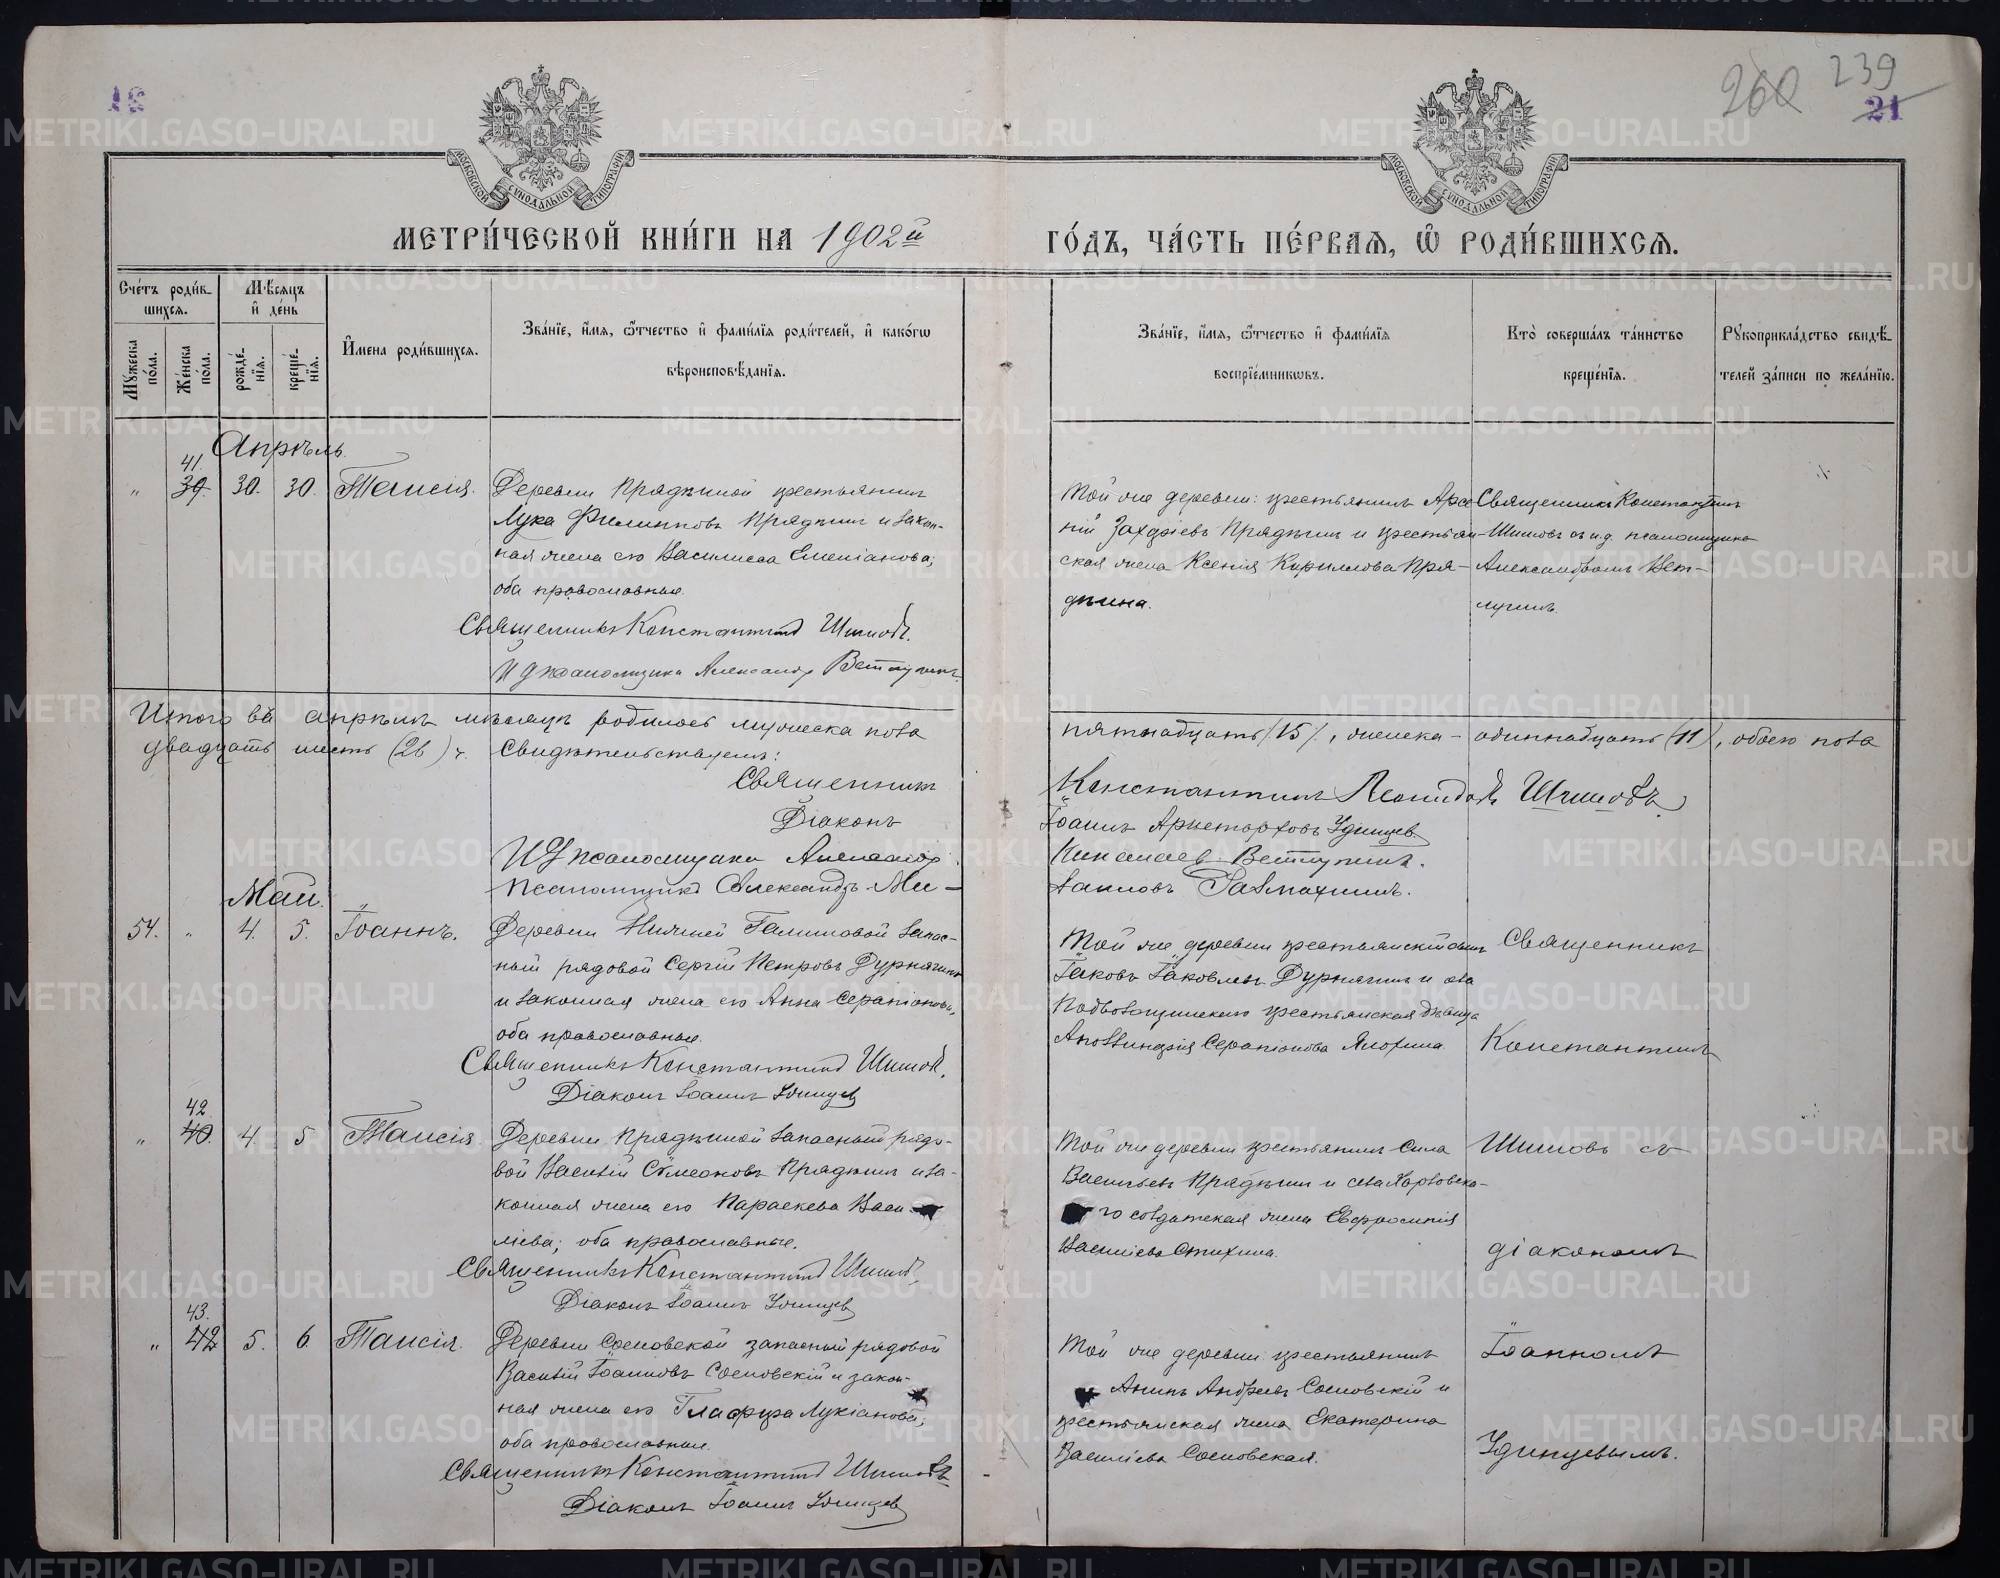 18
260 239
21
МОСКОВСКОЙ СѴНОДАЛЬНОЙ ТИПОГРАФІИ
МОСКОВСКОЙ СѴНОДАЛЬНОЙ ТИПОГРАФІИ
МЕТРИ́ЧЕСКОЙ КНИ́ГИ НА 1902й
ГО́ДЪ, ЧА́СТЬ ПЕ́РВАѦ, Ѽ РОДИ́ВШИХСѦ.
Сче́тъ роди́в-
шихсѧ.
Мꙋжеска по́ла.
Же́нска по́ла.
Мѣ́сѧцъ
и҆ де́нь
рожде́-
нїѧ.
креще́-
нїѧ.
И҆мена роди́вшихсѧ.
Зва́нїе, и҆́мѧ, ѻ҆́тчество и҆ фами́лїѧ роди́телей, и҆ како́гѡ
вѣроисповѣ́данїѧ.
Зва́нїе, и҆́мѧ, ѻ҆́тчество и҆ фами́лїѧ
воспрїе́мникѡвъ.
Кто̀ соверша́лъ та́инство
креще́нїѧ.
Рꙋкоприкла́дство свидѣ́-
телей за́писи по жела́нїю.
Апрѣль.
41.
" 39. 30. 30. Таисія.
Деревни Прядѣиной крестьянинъ
Лука Филипповъ Прядѣинъ и закон-
ная жена его Василисса Емеліанова;
оба православные.
Священникъ Константинъ Шишовъ.
И д псаломщика Александръ Ветлугинъ.
Той же деревни: крестьянинъ Арсе
ній Прядѣинъ и крестьян-
ская жена Ксенія Кириллова Пря-
дѣина.
Священникъ Константинъ
Шишовъ съ и.д. псаломщика
Александромъ Вет-
лугинъ.
Итого въ апрѣлѣ мѣсяцѣ родилось мужеска пола
пятнадцать /15/, женска - одиннадцать (11), обоего пола
двадцать шесть (26) ч. Свидѣтельствуемъ:
Священникъ
Константинъ Леонидовъ Шишовъ
Діаконъ
Іоаннъ Аристарховъ Удинцев.
ИД псаломщика Александръ
Николаев Ветлугинъ.
Псаломщикъ Александръ Ми-
хаиловъ
Май.
54. " 4. 5. Іоаннъ.
Деревни Нижней Галишовой запас-
ный рядовой Сергій Петровъ Дурнягинъ
и законная жена его Анна Серапіонова,
оба православные.
Священникъ Константинъ Шишов.
Діаконъ Іоаннъ Удинцев
Той же деревни крестьянскій сынъ
Іаковъ Іаковлевъ Дурнягинъ и села
Подволошинского крестьянская дѣвица
Серапіонова
Священникъ
Константинъ
42
" 40. 4. 5 Таисія
Деревни Прядѣиной запасный рядо-
вой Василій Сѵмеоновъ Прядѣинъ и за-
конная жена его Параскева Васи-
ліева; оба православные.
Священникъ Константинъ Шишов,
Діаконъ Іоаннъ Удинцев
Той же деревни крестьянинъ Сила
Васильевъ Прядѣинъ и села
го солдатская жена Евфросинія
Василіева
Шишовъ съ
діакономъ
43.
" 42 5. 6. Таисія.
Деревни Сосновской запасный рядовой
Василій Іоанновъ Сосновскій и закон-
ная жена его Глафира Лукіанова;
оба православные.
Священникъ Константинъ Шишовъ
Діаконъ Іоаннъ Удинцев
Той же деревни крестьянинъ
Андреевъ Сосновскій и
крестьянская жена Екатерина
Василіева Сосновская.
Іоанномъ
Удинцевымъ.
METRIKI.GASO-URAL.RU